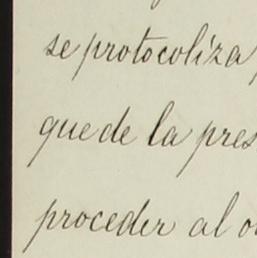 se protocoliza
que de la pres
proceder al o